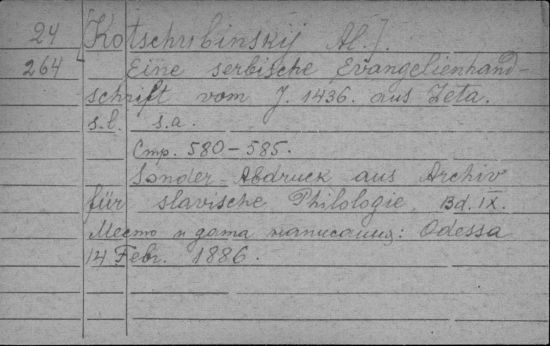 24 [Kotschubinskij Al.].
264 Eine serbische Evangelienhand-
schrift vom J. 1436. aus Zeta.
s.l. s.a.
Стр. 580-585.
Sonder-Abdruck aus Archiv
für slavische Philologie, Bd. IX.
Место и дата написания: Odessa
14 Febr. 1886.